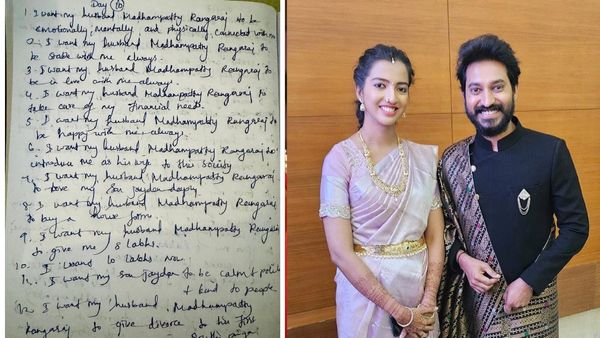 Day (10)
1. I want my husband Madhampatty Rangaraj to be
emotionally, mentally and physically connected with me
2. I want my husband Madhampatty Rangaraj to
be with me always.
3. I want my husband Madhampatty Rangaraj to
be in love with me always.
4. I want my husband Madhampatty Rangaraj to
take care of my financial needs.
5. I want my husband Madhampatty Rangaraj to
be happy with me always.
6. I want my husband Madhampatty Rangaraj to
introduce me as his wife to this society
7. I want my husband Madhampatty Rangaraj
to love my son jaydon deeply
8. I want my husband Madhampatty Rangaraj
to buy a house
9. I want my husband Madhampatty Rangaraj
to give me 8 lakhs.
10. I want 10 lakhs now
11. I want my son jaydon to be calm & polite
& kind to people
12. I want my husband Madhampatty
Rangaraj to give divorce to his first